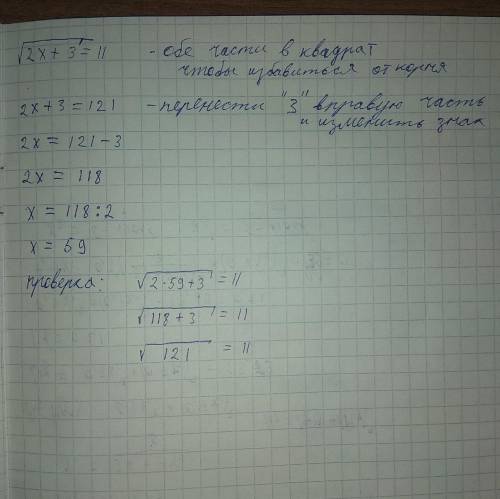 √2x + 3 = 11 - обе части в квадрат
чтобы избавиться от корня
2x + 3 = 121 - перенести "3" в правую часть
и изменить знак
2x = 121 - 3
2x = 118
x = 118 : 2
x = 59
проверка: √2·59+3 = 11
√118 + 3 = 11
√121 = 11